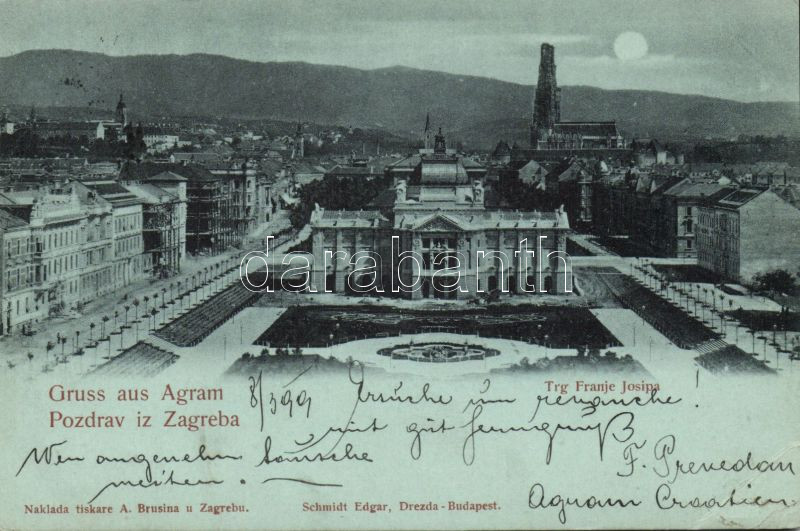 darabanth
Gruss aus Agram
Pozdrav iz Zagreba
Trg Franje Josipa
8/3 99
Ersuche um revanche!
mit
Wen angenehm tausche
F. Prevedan
Agram Croatien
Naklada tiskare A. Brusina u Zagrebu.
Schmidt Edgar, Drezda-Budapest.